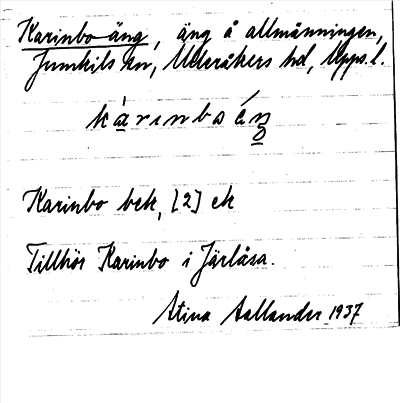 Karinbo äng, äng å allmänningen,
Jumkils sn, Ulleråkers hd, Upps. l.
kàrinboéŋ
Karinbo bek, [2] ek
Tillhör Karinbo i Järlåsa.
Stina Aallander 1937